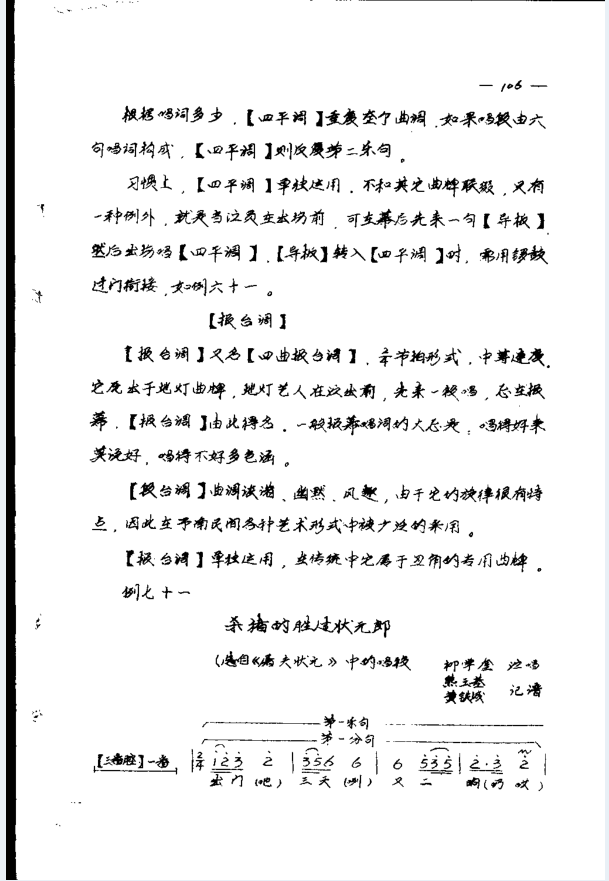 — 106 —
根据唱词多少，【四平调】重复整个曲调，如果唱段由六
句唱词构成，【四平调】则反复第二乐句。
习惯上，【四平调】单独运用，不和其它曲牌联缀，只有
一种例外，就是当演员在出场前，可在幕后先来一句【导板】
然后出场唱【四平调】，【导板】转入【四平调】时，需用锣鼓
过门衔接，如例六十一。
【报台调】
【报台调】又名【四曲报台调】，本节拍形式，中等速度，
它是出于地灯曲牌，地灯艺人在演出前，先来一段唱，总在报
幕，【报台调】由此得名。一般报幕唱词的大意是：唱得好来
莫说好，唱得不好多包涵。
【报台调】曲调诙谐、幽默、风趣，由于它的旋律很有特
点，因此在予南民间各种艺术形式中被广泛的采用。
【报台调】单独运用，在传统中它属于丑角的专用曲牌。
例七十一
杀猪的胜过状元郎
（选自《屠夫状元》中的唱段
柳学全 演唱
熊玉基
黄铁成 记谱
第一乐句
第一分句
【三番腔】一番 2/4 1 2 3 2 | 3 5 6 6 | 6 5 3 5 | 2 · 3 2
出门（吧）三天（咧）又二晌（药哎）